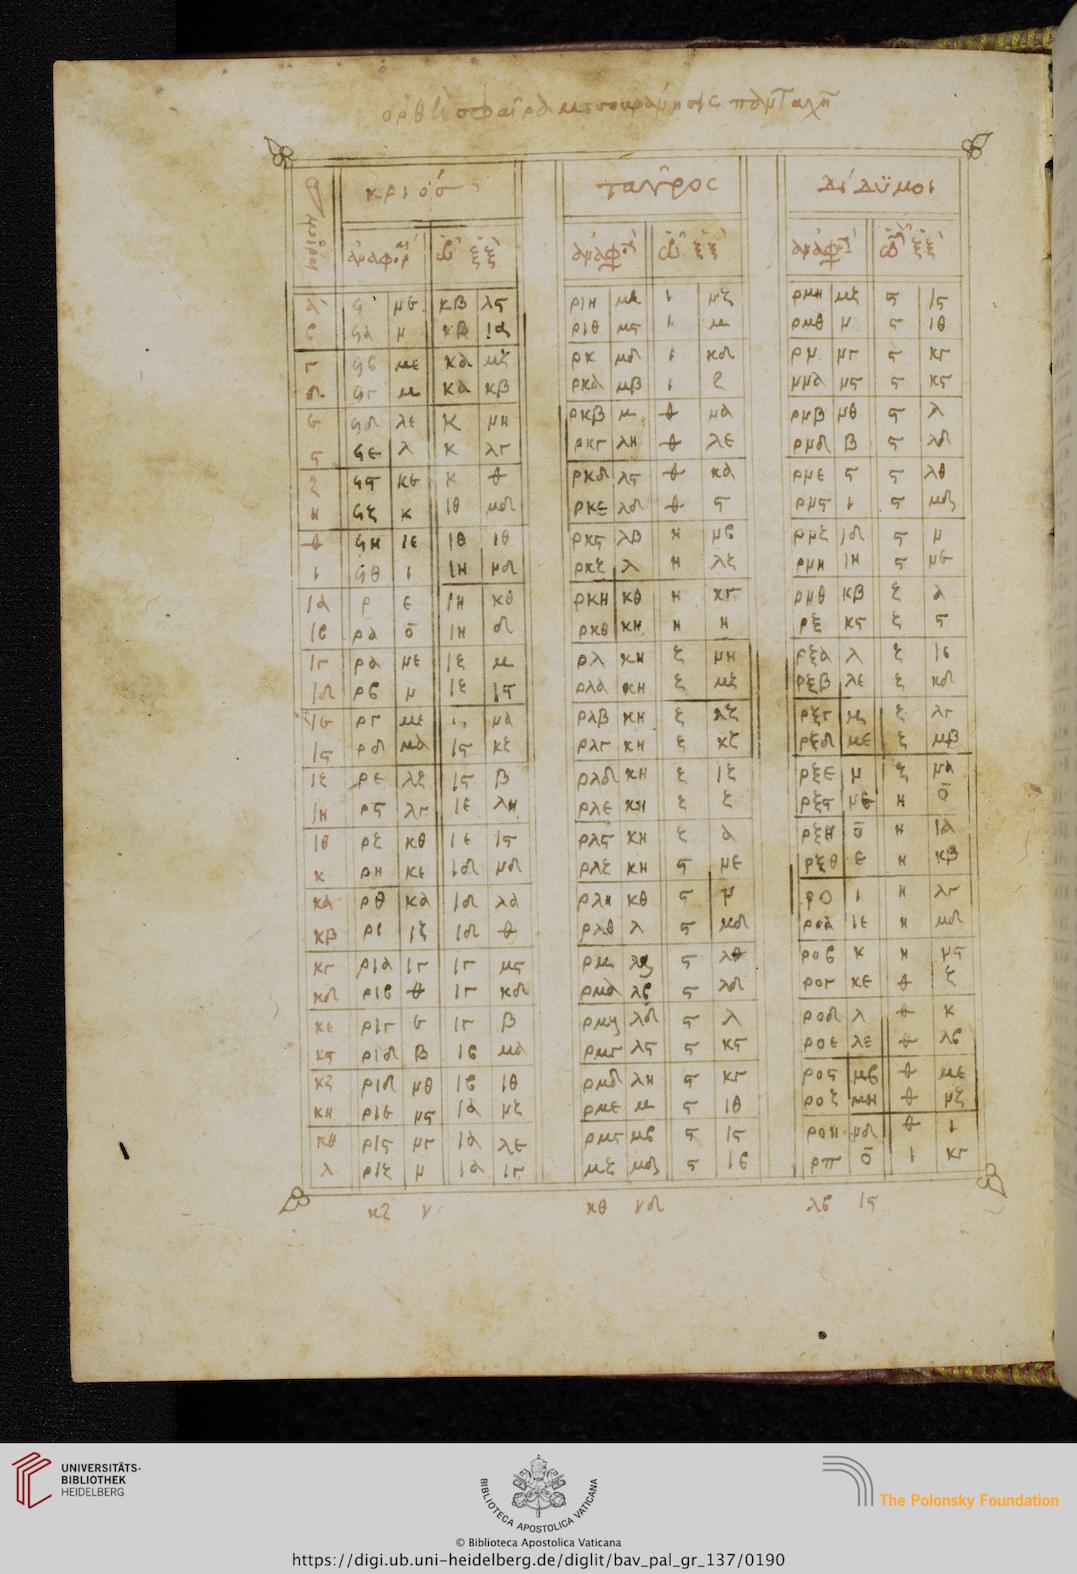 κριός ταῦρος Δίδϋμοι
α ϥ με κβ λϛ ριη ι μζ ρμη μζ ϛ ιϛ
β ϥα μ κβ ια ριθ μϛ ι μ ρμθ ν ϛ ιθ
γ ϥβ με κα μζ ρκ μδ ι κδ ρν νγ ϛ κγ
δ ϥγ μ κα κβ ρκα μβ ι ζ νϛ ϛ κϛ
ε ϥδ λε κ νη ρκβ μ θ μα ρνβ νθ ϛ λ
ϛ ϥε λ κ λγ ρκγ λη θ λε ρνδ β ϛ λδ
ζ ϥϛ κε κ θ ρκδ λϛ θ κα ρνε ϛ ϛ λθ
η ϥζ κ ιθ μδ ρκε λδ θ ϛ ρνϛ ι ϛ μδ
θ ϥη ιε ιθ ιθ ρκϛ λβ η νβ ρνζ ιδ ϛ ν
ι ϥθ ι ιη νδ ρκζ λ η λζ ρνη ιη ϛ νε
ια ρ ε ιη κθ ρκη κθ η κγ ρνθ κβ ζ α
ιβ ρα ο ιη δ ρκθ κη η η ρξ κϛ ζ ϛ
ιγ ρα νε ιζ μ ρλ κη ζ νη ρξα λ ζ ιε
ιδ ρβ ν ιζ ιϛ ρλα κη ζ μζ ρξβ λε ζ κδ
ιε ργ με μα ρλβ κη ζ λζ ρξγ μ ζ λγ
ιϛ ρδ μα ιϛ κζ ρλγ κη ζ κζ ρξδ με ζ μβ
ιζ ρε λζ ιϛ β ρλδ κη ζ ιζ ρξε ν ζ να
ιη ρϛ λγ ιε λη ρλε κη ζ ζ ρξϛ νε η ο
ιθ ρζ κθ ιε ιϛ ρλϛ κη ζ α ρξη ο η ια
κ ρη κε ιδ νδ ρλζ κη ϛ νε ρξθ ε η κβ
κα ρθ κα ιδ λα ρλη κθ ϛ ν ρο ι η λγ
κβ ρι ιζ ιδ θ ρλθ λ ϛ μδ ροα ιε η μδ
κγ ρια ιγ ιγ μϛ ρμ ϛ λθ ροβ κ η νϛ
κδ ριβ θ ιγ κδ ρμα λβ ϛ λδ ρογ κε θ ζ
κε ριγ ε ιγ β λδ ϛ λ ροδ λ θ κ
κϛ ριδ β ιβ μα ρμγ λϛ ϛ κϛ ροε λε θ λβ
κζ ριδ νθ ιβ ιθ ρμδ λη ϛ κγ ροϛ μβ θ με
κη ριε νϛ ια νζ ρμε μ ϛ ιθ ροζ μη θ νζ
κθ ριϛ νγ ια λε ρμϛ μβ ϛ ιϛ ροη νδ θ ι
λ ριζ ν ια ιγ μζ μδ ϛ ιβ ρπ ο ι κγ
κζ ν κθ νδ λβ ιϛ
UNIVERSITÄTS-
BIBLIOTHEK
HEIDELBERG
BIBLIOTECA APOSTOLICA VATICANA
The Polonsky Foundation
© Biblioteca Apostolica Vaticana
https://digi.ub.uni-heidelberg.de/diglit/bav_pal_gr_137/0190